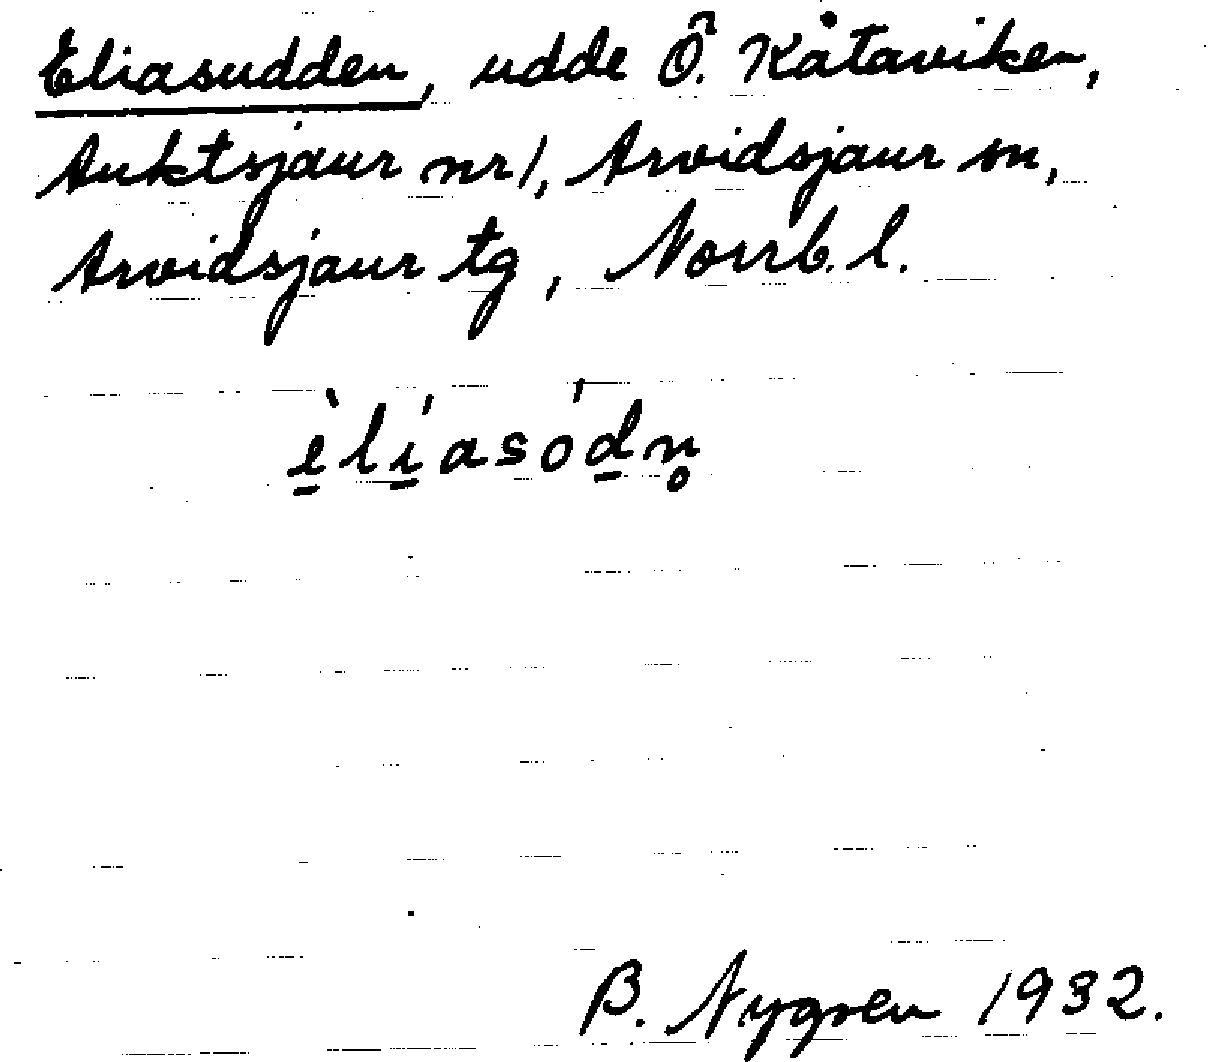 Eliasudden, udde Ö. Kåtaviken,
Auktsjaur nr 1, Arvidsjaur sn,
Arvidsjaur tg, Norrb. l.
è̱lí̱asóḏn̥
B. Nygren 1932.